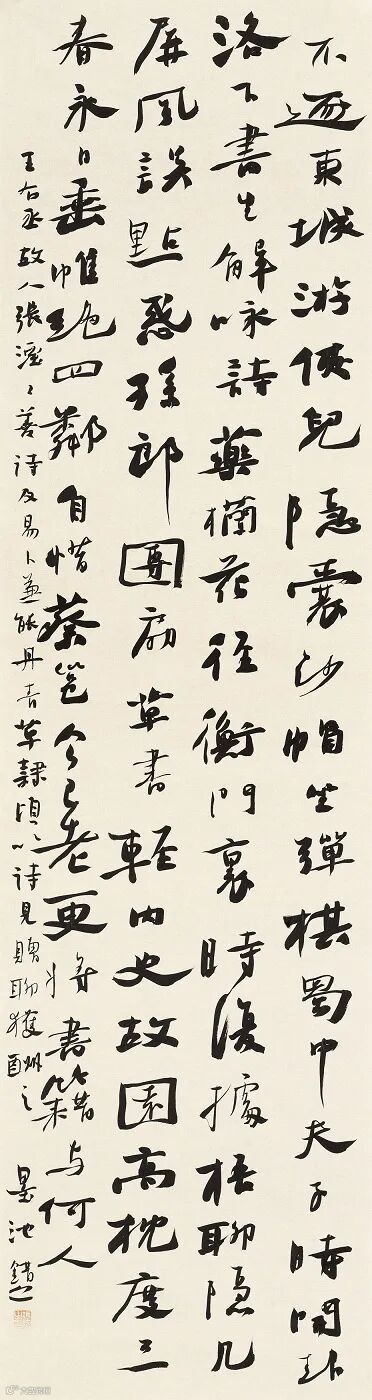 不逐東城游俠兒隱囊沙帽坐彈棋蜀中夫子時開卦
洛下書生解咏詩藥欄花徑衡門裏時復據梧聊隱几
屏風誤點惑孫郎團扇草書輕內史故園高枕度三
春永日垂帷絕四鄰自惜蔡邕今已老更將書籍与何人
王右丞故人張諲善詩及易卜兼能丹青草隸頃以詩見贈聊獲酬之